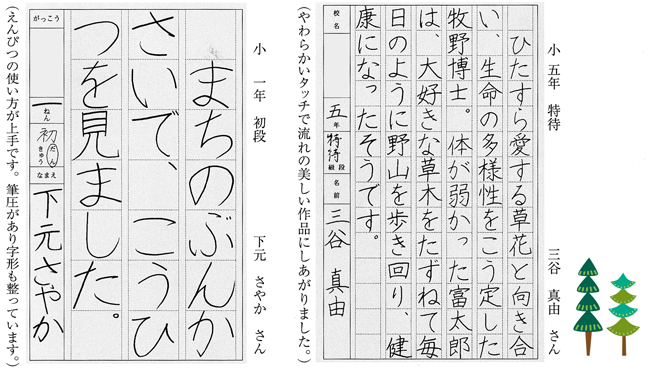 小 五年 特待 三谷 真由 さん
ひたすら愛する草花と向き合
い、生命の多様性をこう定した
牧野博士。体が弱かった富太郎
は、大好きな草木をたずねて毎
日のように野山を歩き回り、健
康になったそうです。
校名
五年 特待 級段 名前 三谷 真由
(やわらかいタッチで流れの美しい作品にしあがりました。)
小 一年 初段 下元 さやか さん
まちのぶんか
さいで、こうひ
つを見ました。
がっこう
一ねん 初だんきゅう なまえ 下元さやか
(えんぴつの使い方が上手です。筆圧があり字形も整っています。)